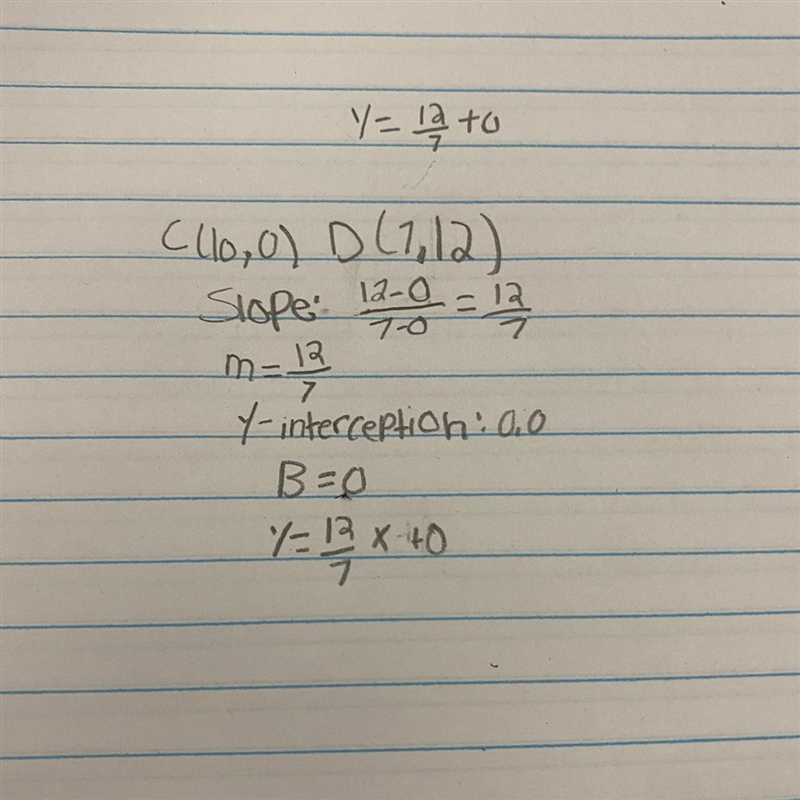 y = 12/7 + 0
C(10,0) D(7,12)
Slope: 12-0/7-0 = 12/7
m = 12/7
y-interception: 0,0
B = 0
y = 12/7 x + 0